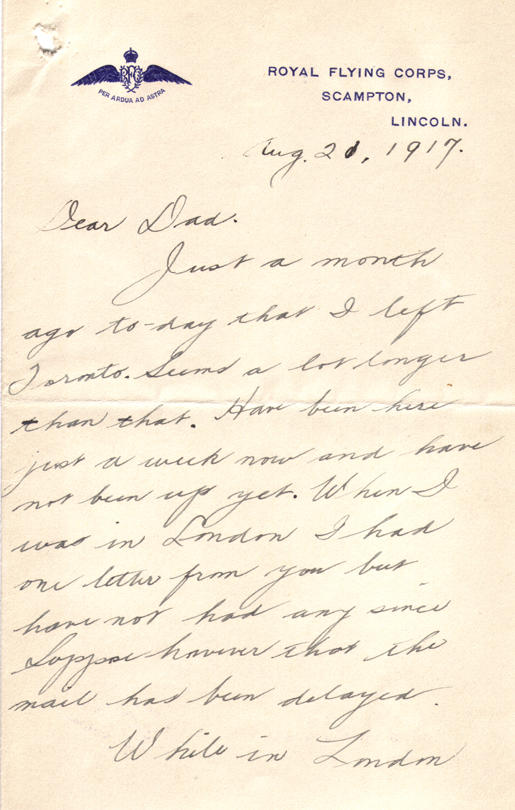 RFC
PER ARDUA AD ASTRA
ROYAL FLYING CORPS,
SCAMPTON,
LINCOLN.
Aug. 21, 1917.
Dear Dad.
Just a month
ago to-day that I left
Toronto. Seems a lot longer
than that. Have been here
just a week now and have
not been up yet. When I
was in London I had
one letter from you but
have not had any since
Suppose however that the
mail has been delayed.
While in London